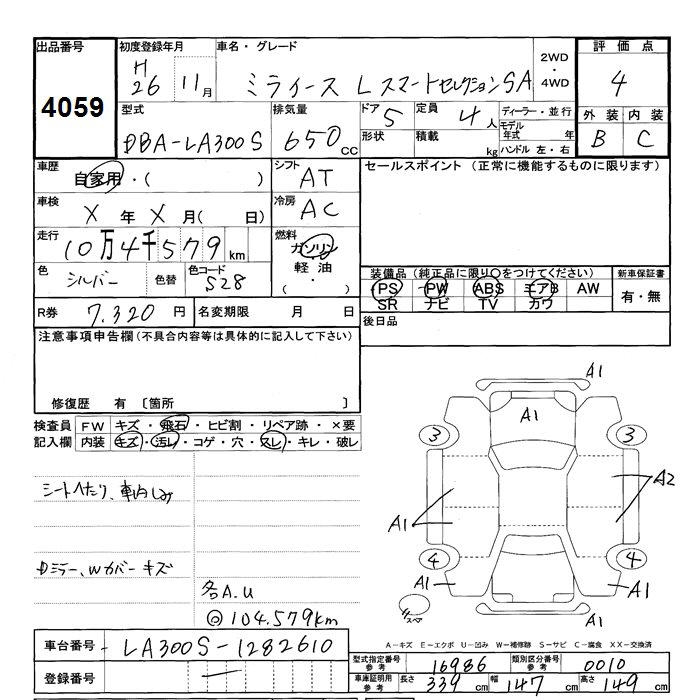 出品番号 初度登録年月 車名・グレード 2WD・4WD 評価点
4059 H26 11月 ミライース L スマートセレクションSA 4
型式 排気量 ドア 5 定員 4人 ディーラー・並行 外装 内装
DBA-LA300S 650cc 形状 積載 kg モデル年式 年 ハンドル 左・右 B C
車歴 自家用・( ) シフト AT セールスポイント (正常に機能するものに限ります)
車検 X 年 X 月( 日) 冷房 AC
走行 10万4千579km 燃料 ガソリン 軽油 ( ・ )
色 シルバー 色替 色コード S28
装備品 (純正品に限り○をつけてください) 新車保証書
PS PW ABS エアB AW 有・無
SR ナビ TV カワ
R券 7,320円 名変期限 月 日 後日品
注意事項申告欄(不具合内容等は具体的に記入して下さい)
修復歴 有 〔箇所 〕
検査員 FW キズ・飛石・ヒビ割・リペア跡・×要
記入欄 内装 キズ・汚レ・コゲ・穴・スレ・キレ・破レ
シートへたり、車内しみ
Dミラー、Wカバーキズ
各A.U
◎104,579km
A1
A1
3 3
A1 A2
4 4
A1 A1
スペア
A1
A-キズ E-エクボ U-凹み W-補修跡 S-サビ C-腐食 XX-交換済
車台番号 LA300S-1282610
登録番号 —
型式指定番号 参考 16986 類別区分番号 参考 0010
車庫証明用 参考 長さ 339cm 幅 147cm 高さ 149cm